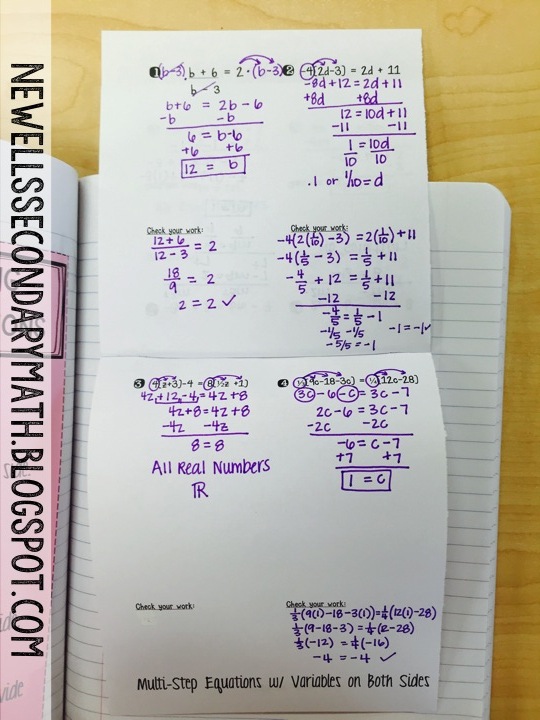 NEWELLSSECONDARYMATH.BLOGSPOT.COM
1 (b-3) · b + 6 = 2 · (b-3)
b - 3
b+6 = 2b - 6
-b -b
6 = b-6
+6 +6
12 = b
Check your work:
12+6 = 2
12-3
18 = 2
9
2 = 2 ✓
2 -4(2d-3) = 2d + 11
-8d+12 = 2d+11
+8d +8d
12 = 10d+11
-11 -11
1 = 10d
10 10
.1 or 1/10 = d
Check your work:
-4(2(1/10) - 3) = 2(1/10) + 11
-4(1/5 - 3) = 1/5 + 11
-4/5 + 12 = 1/5 + 11
-12 -12
-4/5 = 1/5 - 1
-1/5 -1/5
-5/5 = -1
-1 = -1 ✓
3 4(z+3)-4 = 8(½z +1)
4z+12-4 = 4z+8
4z+8 = 4z+8
-4z -4z
8 = 8
All Real Numbers
ℝ
Check your work:
4 ⅓(9c-18-3c) = ¼(12c-28)
3c - 6 - c = 3c - 7
2c-6 = 3c-7
-2c -2c
-6 = c-7
+7 +7
1 = c
Check your work:
1/3(9(1)-18-3(1)) = 1/4(12(1)-28)
1/3(9-18-3) = 1/4(12-28)
1/3(-12) = 1/4(-16)
-4 = -4 ✓
Multi-Step Equations w/ Variables on Both Sides
vide